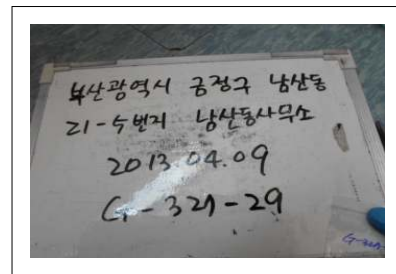 부산광역시 금정구 남산동
21-5번지 남산동사무소
2013.04.09
G-321-29